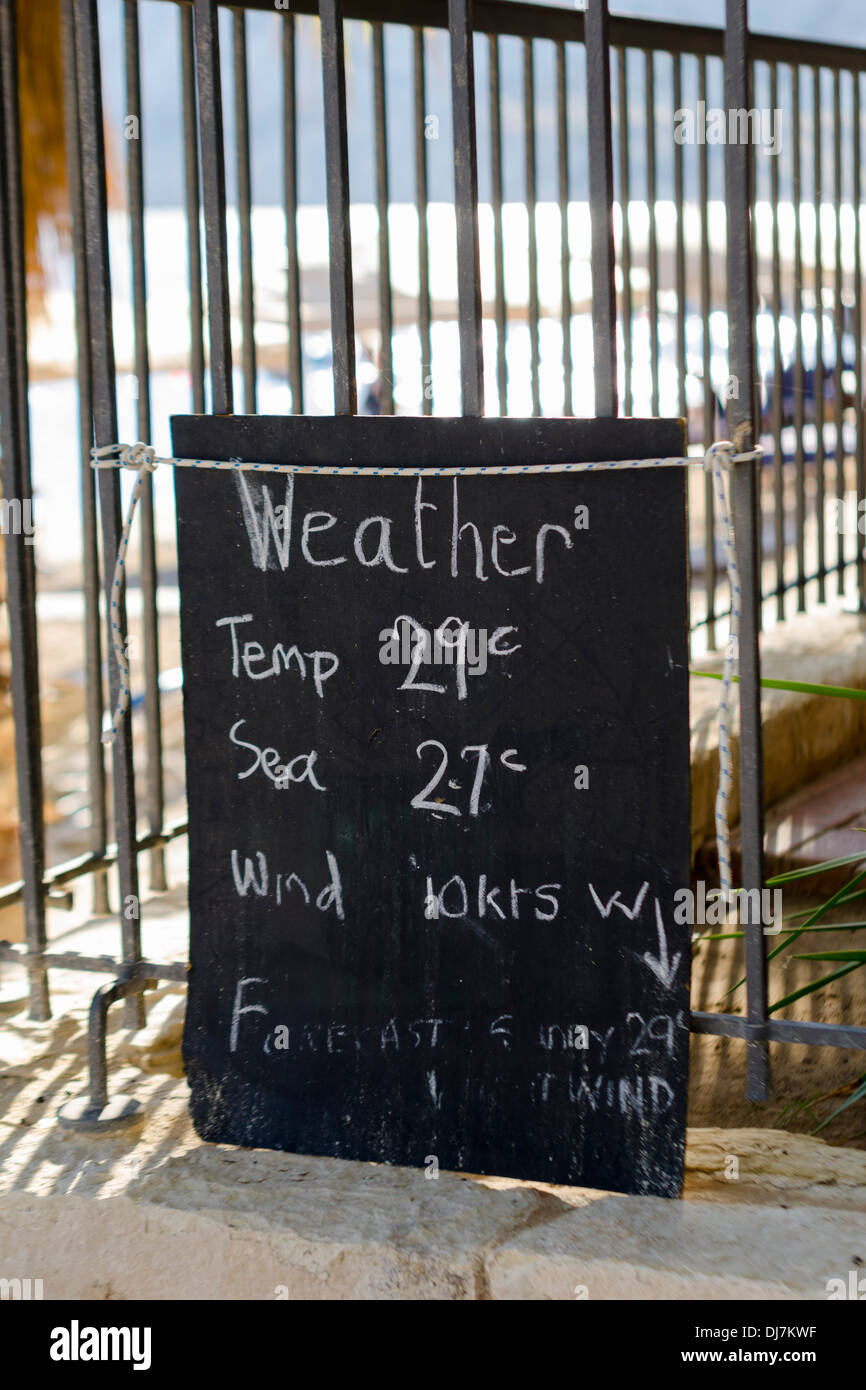 Weather
Temp 29c
Sea 27c
Wind 10kts W ↓
FORECAST Sunny 29c
WIND
alamy
Image ID: DJ7KWF
www.alamy.com